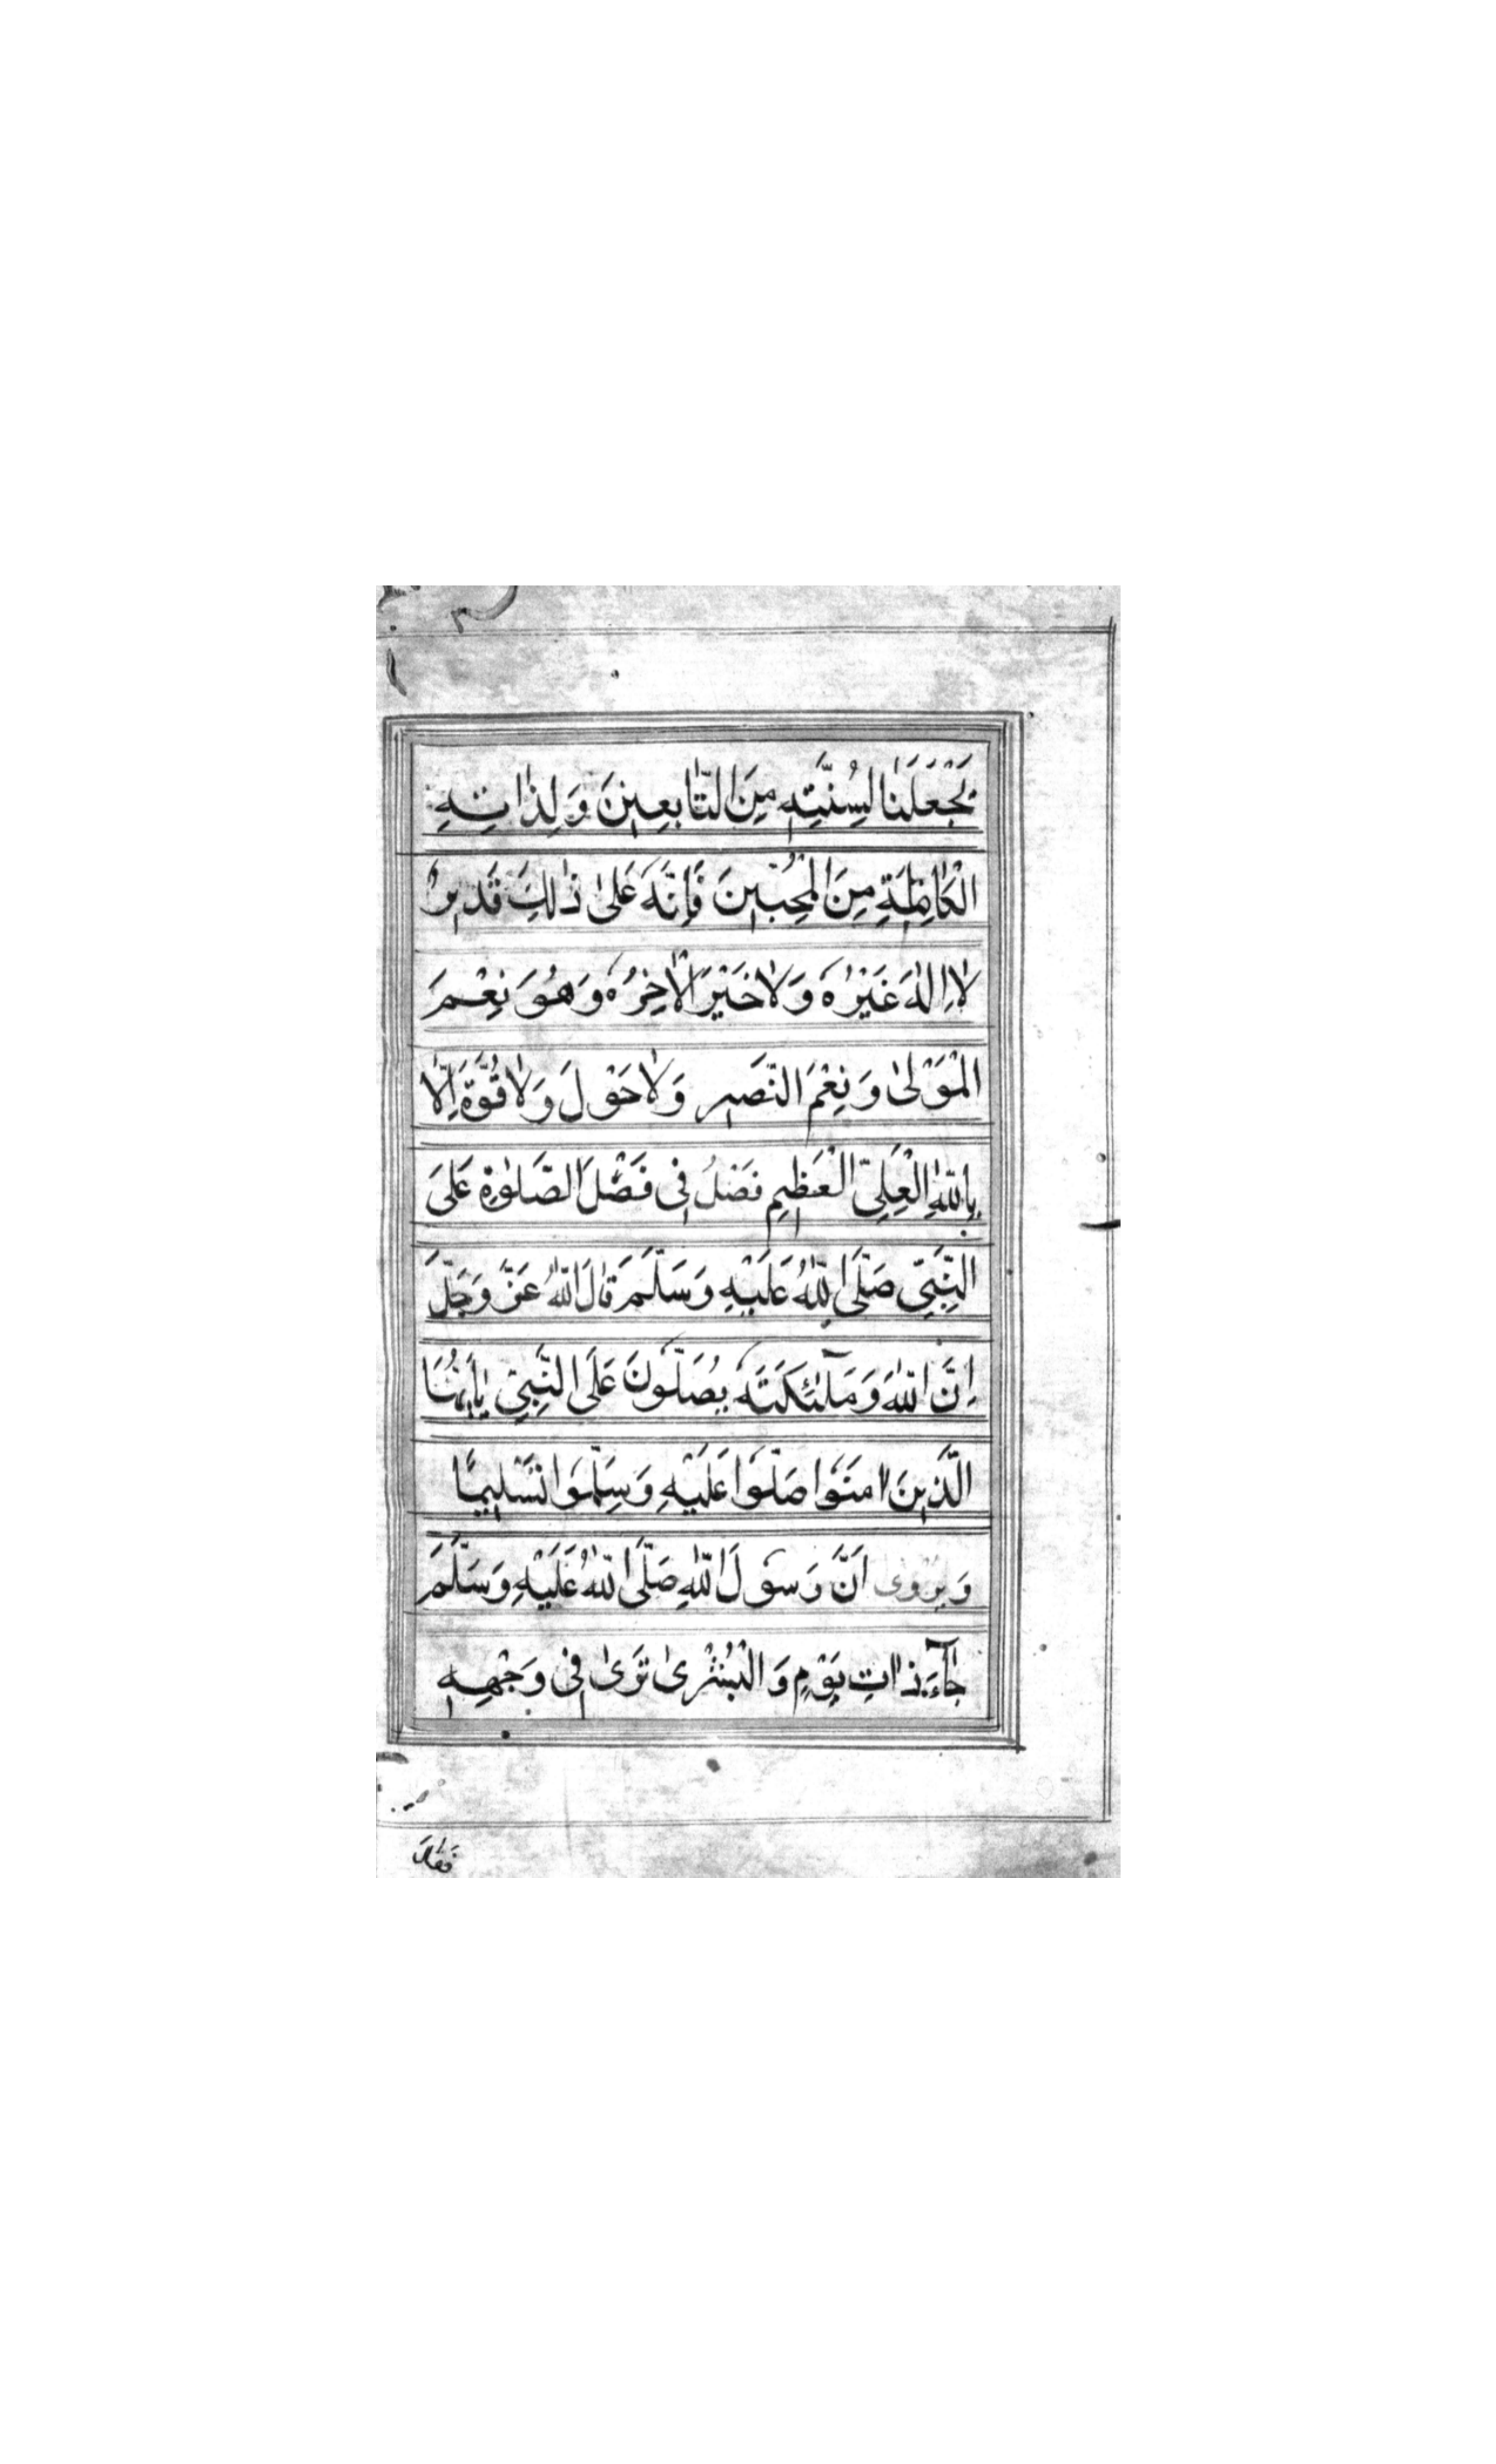 يَجْعَلَنَا لِسُنَّتِهِ مِنَ التَّابِعِينَ وَلِذَاتِهِ
الْكَامِلَةِ مِنَ الْمُحِبِّينَ فَإِنَّهُ عَلىٰ ذٰلِكَ قَدِيرٌ
لَا اِلٰهَ غَيْرُهُ وَلَا خَيْرَ اِلَّا خَيْرُهُ وَهُوَ نِعْمَ
الْمَوْلىٰ وَنِعْمَ النَّصِير وَلَا حَوْلَ وَلَا قُوَّةَ اِلَّا
بِاللّٰهِ الْعَلِيِّ الْعَظِيمِ فَصْلُ فِي فَضْلِ الصَّلٰوةِ عَلَى
النَّبِيِّ صَلَّى اللّٰهُ عَلَيْهِ وَسَلَّمَ قَالَ اللّٰهُ عَزَّ وَجَلَّ
اِنَّ اللّٰهَ وَمَلٰٓئِكَتَهُ يُصَلُّونَ عَلَى النَّبِيِّ يٰاَيُّهَا
الَّذِينَ اٰمَنُوا صَلُّوا عَلَيْهِ وَسَلِّمُوا تَسْلِيمًا
وَيُرْوىٰ اَنَّ رَسُولَ اللّٰهِ صَلَّى اللّٰهُ عَلَيْهِ وَسَلَّمَ
جَآءَ ذَاتَ يَوْمٍ وَالْبُشْرىٰ تَرىٰ فِي وَجْهِهِ
فَقَالَ